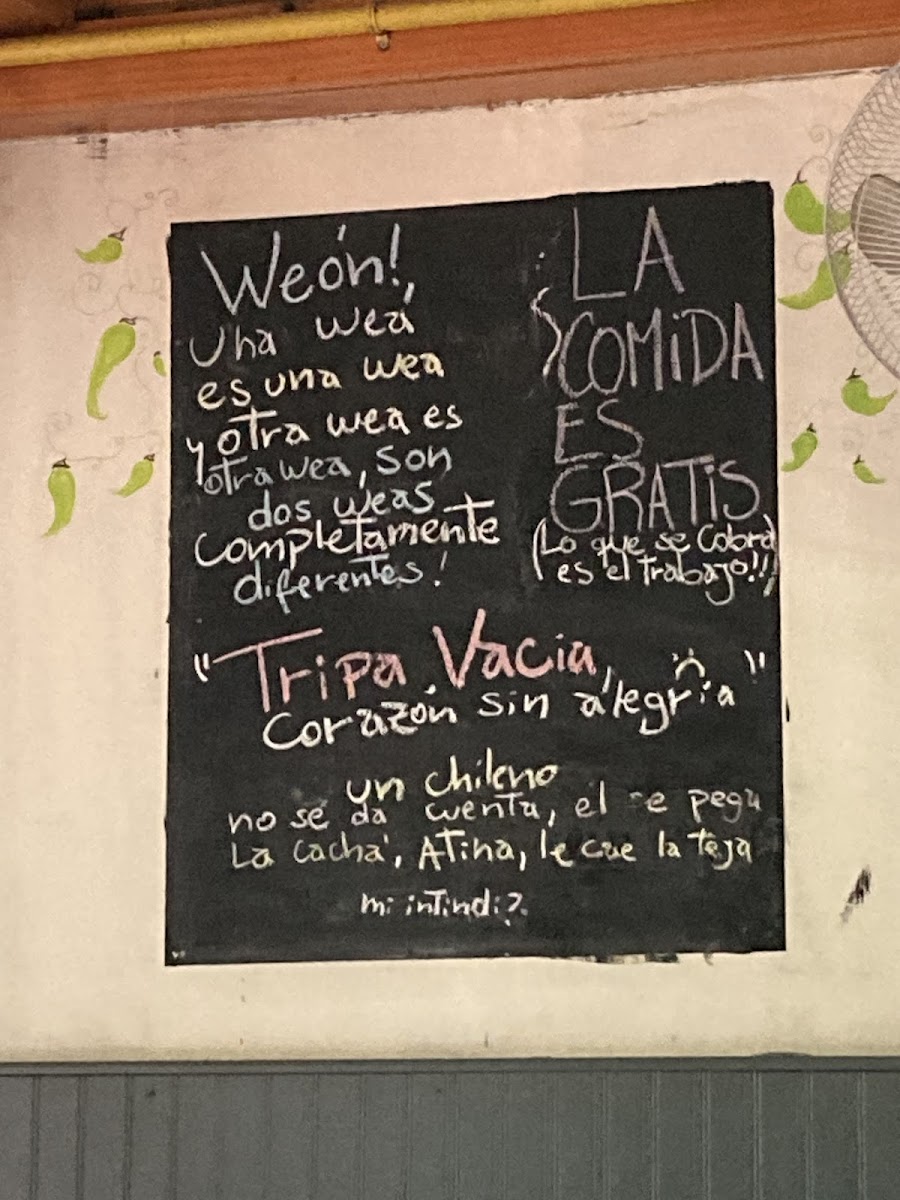 Weón!,
Una weá
es una wea
y otra wea es
otra wea, son
dos weas
completamente
diferentes!
LA
COMiDA
ES
GRATiS
(Lo que se cobra
es el trabajo!!)
"Tripa Vacia,
corazón sin alegría"
un chileno
no se da cuenta, él se pega
La cachá, ATina, le cae la teja
mi intindi?